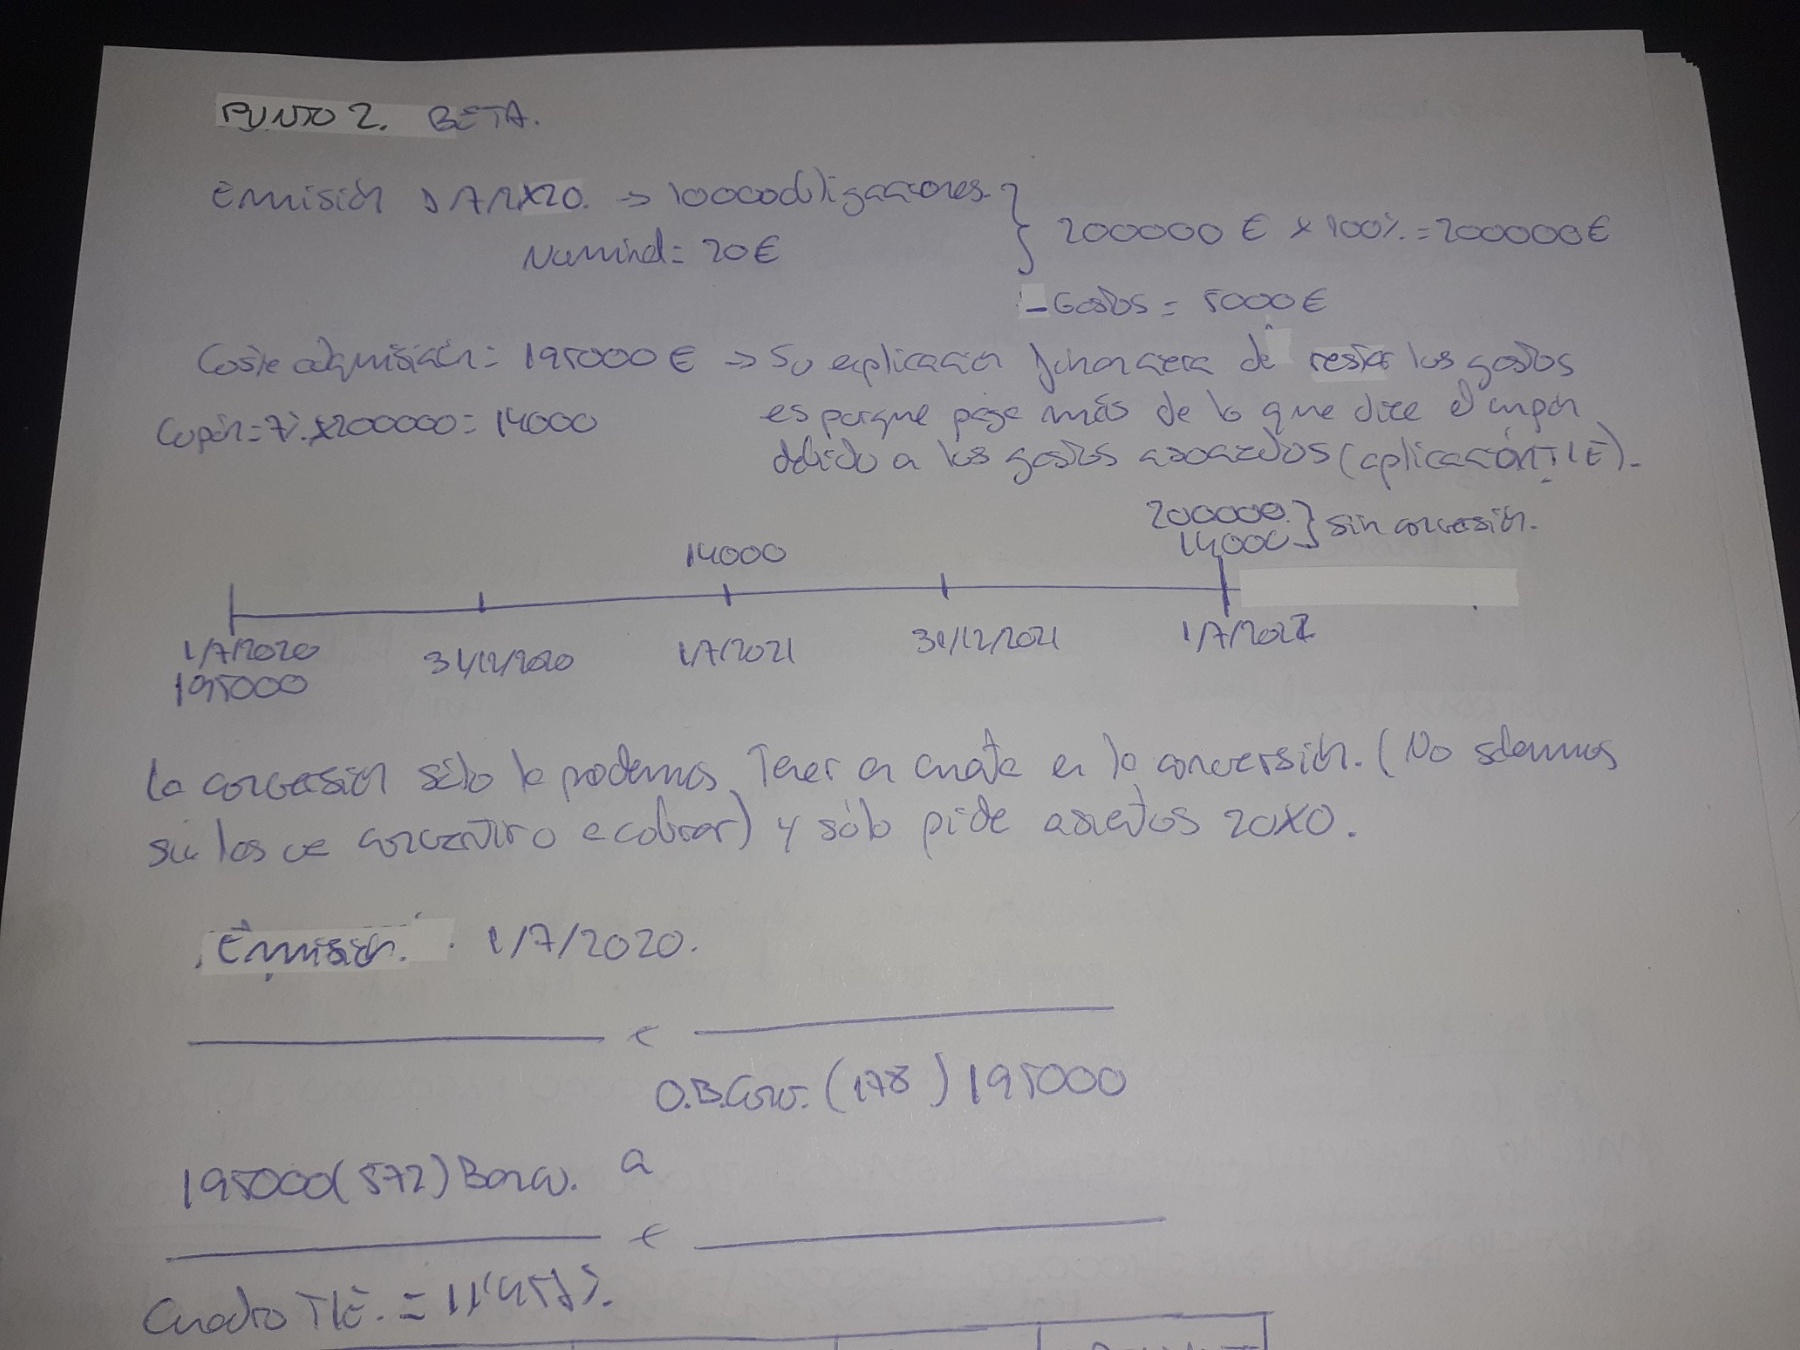 PUNTO 2. BETA.
Emisión 1/7/2X20. → 10000 obligaciones.
Nominal = 20€
200000 € x 100% = 200000€
- Gastos = 5000€
Coste adquisición = 195000 € → Su explicación financiera de restar los gastos
es porque paga más de lo que dice el cupón
debido a los gastos asociados (aplicación TIE).
Cupón = 7% x 200000 = 14000
200000
14000 } sin conversión.
14000
1/7/2020 31/12/2020 1/7/2021 31/12/2021 1/7/2022
195000
La conversión sólo la podemos Tener en cuenta en la conversión. (No sabemos
si los va a o a cobrar) y sólo pide asientos 20X0.
Emisión. 1/7/2020.
O.B.Conv. (178) 195000
195000 (572) Banco. a
Cuadro TIE. = 11'457%.